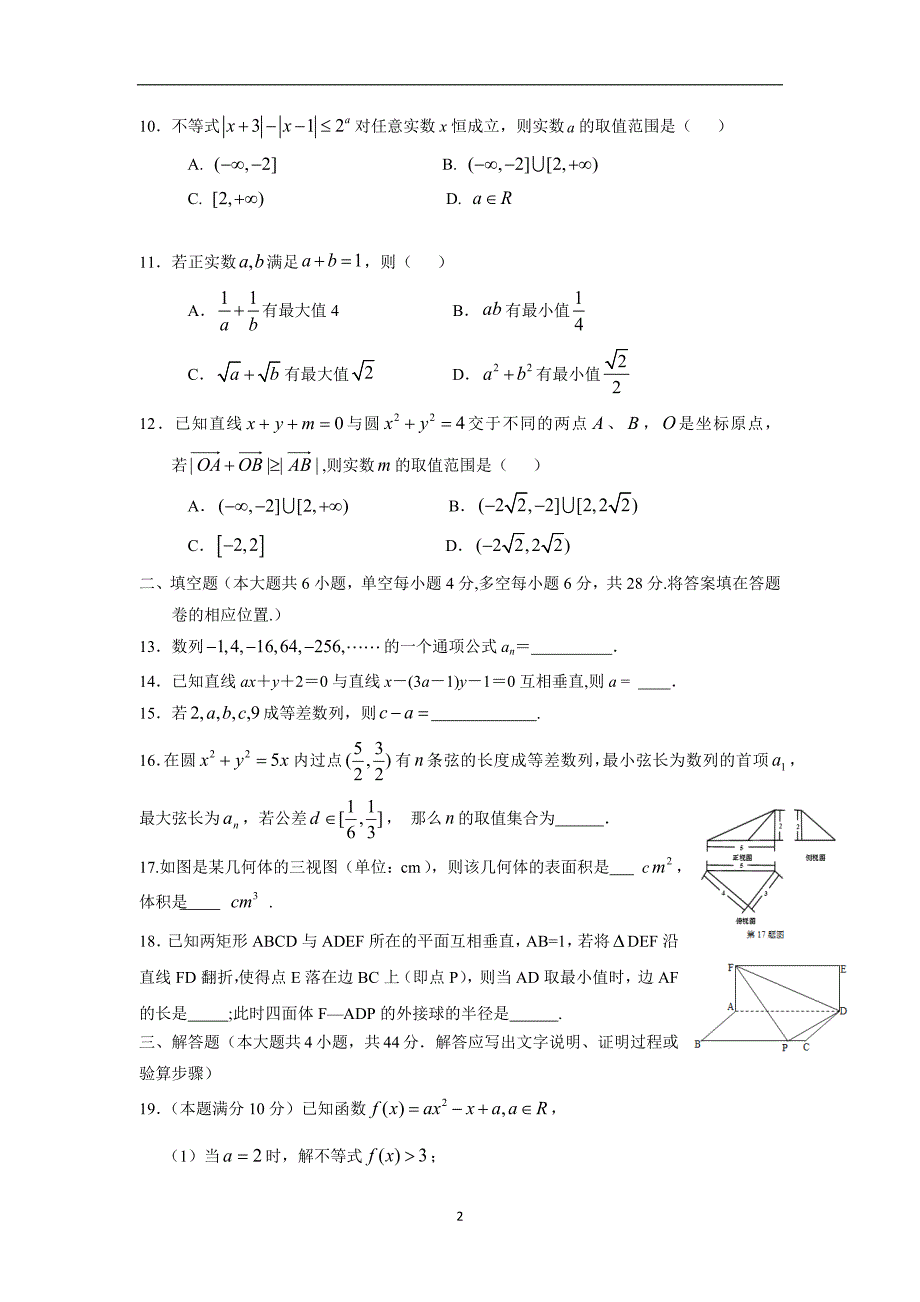 10．不等式|x+3|−|x−1|≤2ᵃ对任意实数x恒成立，则实数a的取值范围是（ ）
A. (−∞,−2] B. (−∞,−2]⋃[2,+∞)
C. [2,+∞) D. a∈R
11．若正实数a,b满足a+b=1，则（ ）
A．1/a+1/b有最大值4 B．ab有最小值1/4
C．√a+√b有最大值√2 D．a²+b²有最小值√2/2
12．已知直线x+y+m=0与圆x²+y²=4交于不同的两点A、B，O是坐标原点，
若|OA+OB|≥|AB|,则实数m的取值范围是（ ）
A．(−∞,−2]⋃[2,+∞) B．(−2√2,−2]⋃[2,2√2)
C．[−2,2] D．(−2√2,2√2)
二、填空题（本大题共6小题，单空每小题4分,多空每小题6分，共28分.将答案填在答题
卷的相应位置.）
13．数列−1,4,−16,64,−256,⋯⋯的一个通项公式aₙ＝__________．
14．已知直线ax＋y＋2＝0与直线x－(3a－1)y－1＝0互相垂直,则a = ____．
15．若2,a,b,c,9成等差数列，则c−a=_____________.
16.在圆x²+y²=5x内过点(5/2,3/2)有n条弦的长度成等差数列,最小弦长为数列的首项a₁，
最大弦长为aₙ，若公差d∈[1/6,1/3]， 那么n的取值集合为______．
17.如图是某几何体的三视图（单位：cm），则该几何体的表面积是___ cm²，
体积是_____ cm³ .
2 2
5
正视图 侧视图
5
4 3
俯视图
第17题图
18．已知两矩形ABCD与ADEF所在的平面互相垂直，AB=1，若将ΔDEF沿
直线FD翻折,使得点E落在边BC上（即点P），则当AD取最小值时，边AF
的长是_____;此时四面体F—ADP的外接球的半径是______.
F E
A D
B P C
三、解答题（本大题共4小题，共44分．解答应写出文字说明、证明过程或
验算步骤）
19．（本题满分10分）已知函数f(x)=ax²−x+a,a∈R，
（1）当a=2时，解不等式f(x)>3；
2